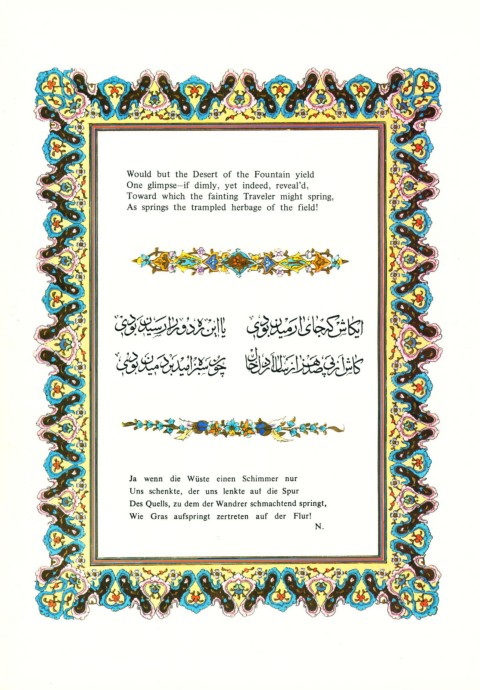 Would but the Desert of the Fountain yield
One glimpse—if dimly, yet indeed, reveal'd,
Toward which the fainting Traveler might spring,
As springs the trampled herbage of the field!
ایکاش که جای آرمیدن بودی یا این ره دور را رسیدن بودی
کاش از پی صد هزار سال از دل خاک چون سبزه امید بر دمیدن بودی
Ja wenn die Wüste einen Schimmer nur
Uns schenkte, der uns lenkte auf die Spur
Des Quells, zu dem der Wandrer schmachtend springt,
Wie Gras aufspringt zertreten auf der Flur!
N.